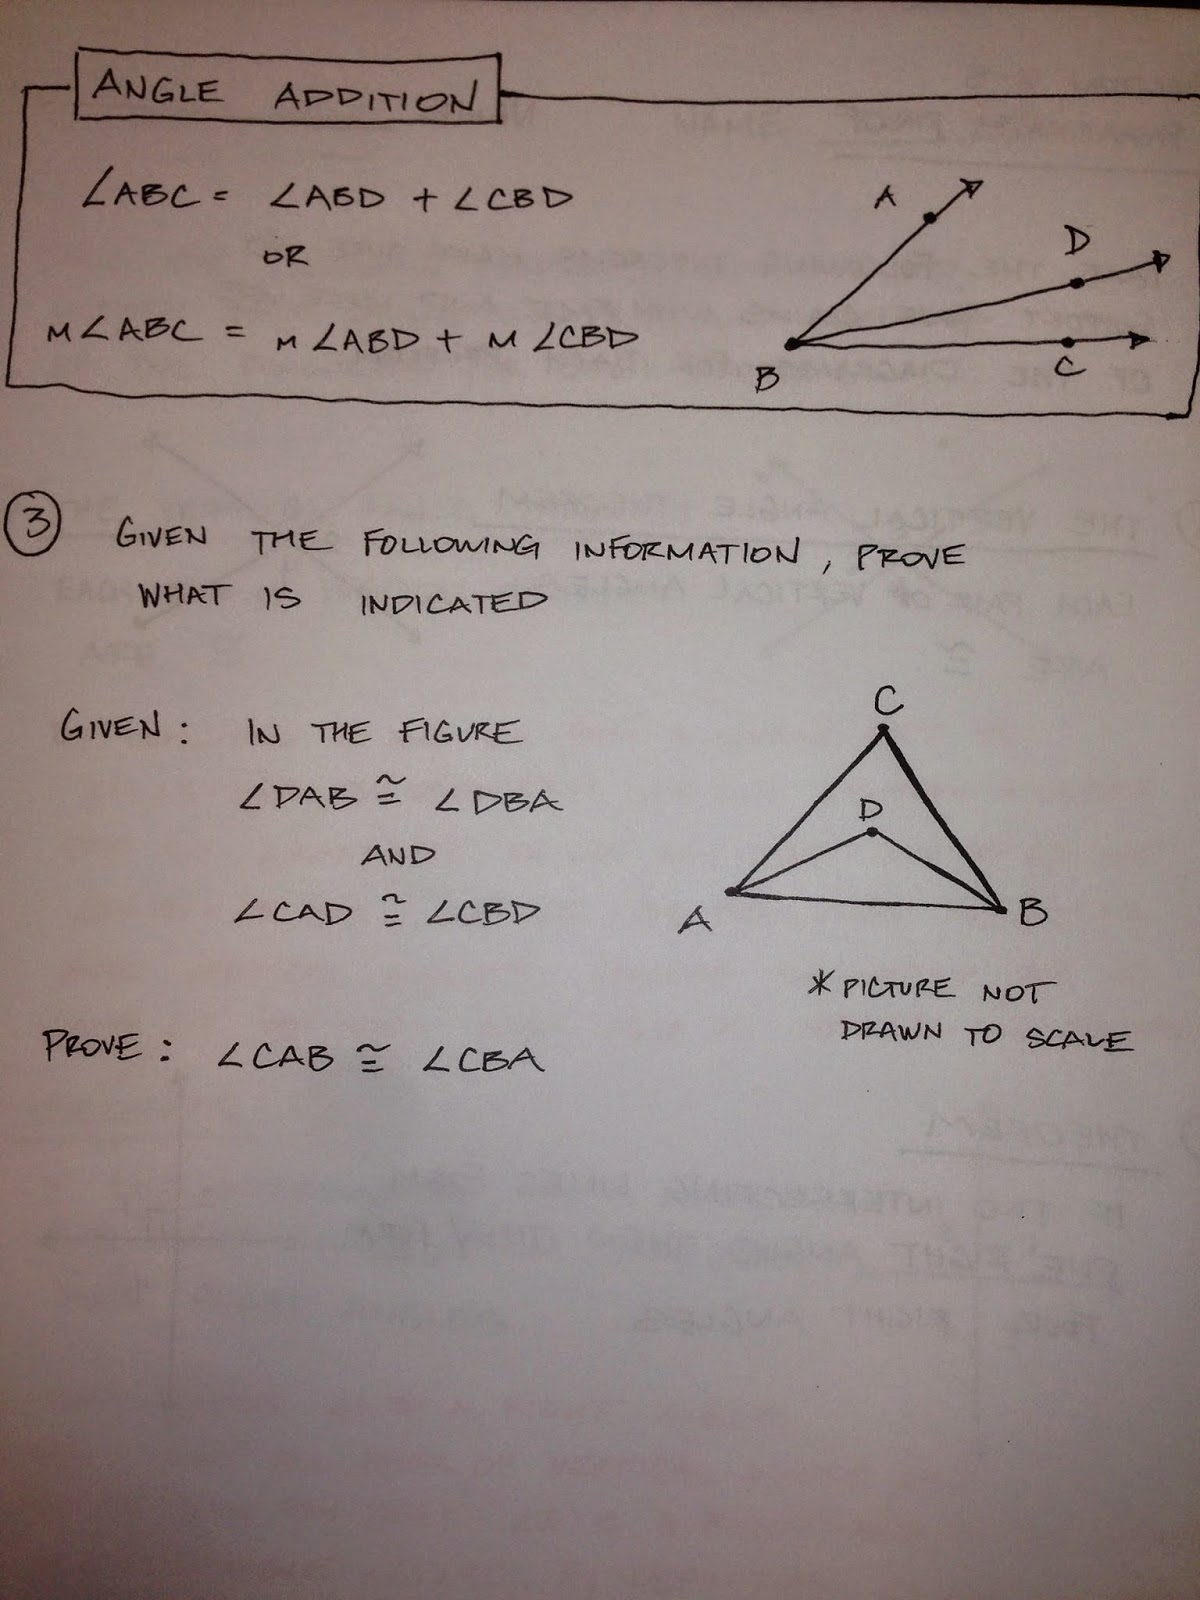 ANGLE ADDITION
∠ABC = ∠ABD + ∠CBD
OR
M∠ABC = M∠ABD + M∠CBD
A
D
B
C
3
GIVEN THE FOLLOWING INFORMATION, PROVE
WHAT IS INDICATED
GIVEN: IN THE FIGURE
∠DAB ≅ ∠DBA
AND
∠CAD ≅ ∠CBD
C
D
A
B
* PICTURE NOT
DRAWN TO SCALE
PROVE: ∠CAB ≅ ∠CBA